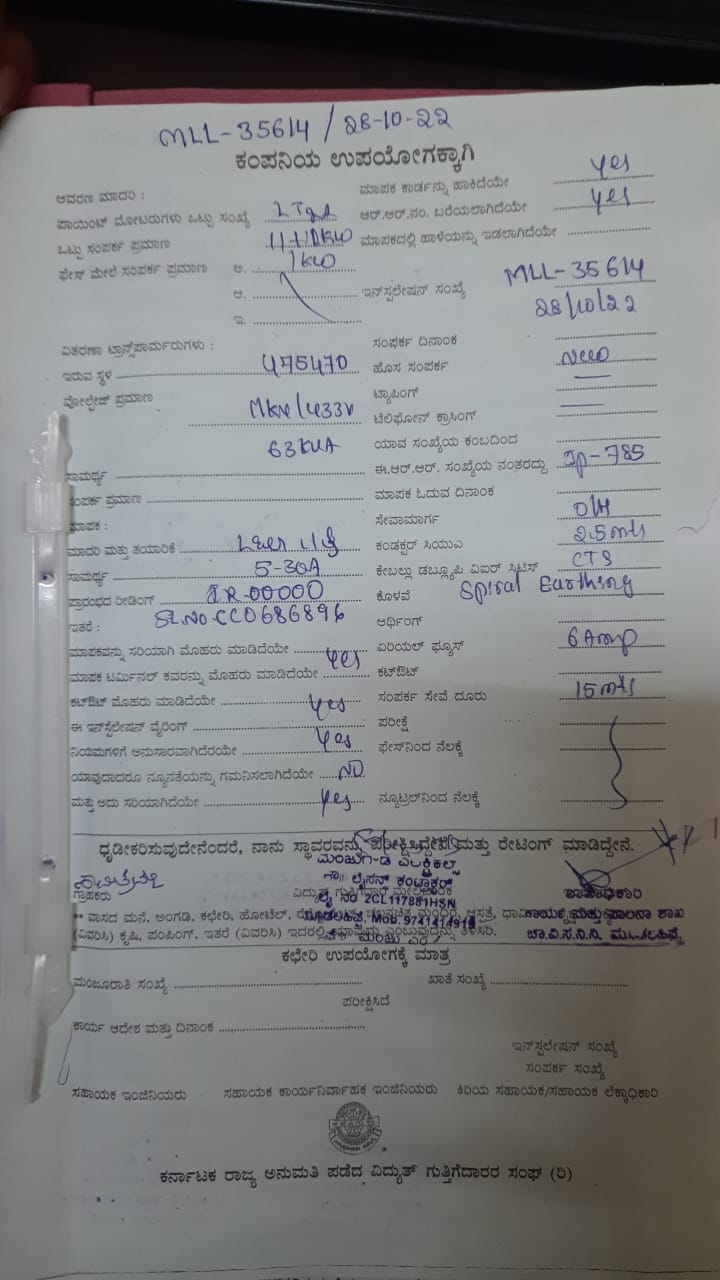 MLL-35614 / 28-10-22
ಕಂಪನಿಯ ಉಪಯೋಗಕ್ಕಾಗಿ
ಆವರಣ ಮಾದರಿ :
ಮಾಪಕ ಕಾರ್ಡನ್ನು ಹಾಕಿದೆಯೇ Yes
ಪಾಯಿಂಟ್ ಮೋಟರುಗಳು ಒಟ್ಟು ಸಂಖ್ಯೆ
ಆರ್.ಆರ್.ನಂ. ಬರೆಯಲಾಗಿದೆಯೇ Yes
ಒಟ್ಟು ಸಂಪರ್ಕ ಪ್ರಮಾಣ
ಮಾಪಕದಲ್ಲಿ ಹಾಳೆಯನ್ನು ಇಡಲಾಗಿದೆಯೇ
ಫೇಸ್ ಮೇಲೆ ಸಂಪರ್ಕ ಪ್ರಮಾಣ ಅ. 1KW
ಆ.
ಇನ್‌ಸ್ಪಲೇಷನ್ ಸಂಖ್ಯೆ MLL-35614
28/10/22
ಇ.
ವಿತರಣಾ ಟ್ರಾನ್ಸ್‌ಪಾರ್ಮರುಗಳು :
ಸಂಪರ್ಕ ದಿನಾಂಕ
ಇರುವ ಸ್ಥಳ 475470
ಹೊಸ ಸಂಪರ್ಕ
ವೋಲ್ಟೇಜ್ ಪ್ರಮಾಣ
ಟ್ಯಾಪಿಂಗ್
ಟೆಲಿಫೋನ್ ಕ್ರಾಸಿಂಗ್
63KVA
ಯಾವ ಸಂಖ್ಯೆಯ ಕಂಬದಿಂದ
ಸಾಮರ್ಥ್ಯ
ಈ.ಆರ್.ಆರ್. ಸಂಖ್ಯೆಯ ನಂತರದ್ದು
ಸಂಪರ್ಕ ಪ್ರಮಾಣ
ಮಾಪಕ ಓದುವ ದಿನಾಂಕ
ಮಾಪಕ :
ಸೇವಾಮಾರ್ಗ O/H
ಮಾದರಿ ಮತ್ತು ತಯಾರಿಕೆ
ಕಂಡಕ್ಟರ್ ಸಿಯುವಿ 2.5mts
ಸಾಮರ್ಥ್ಯ 5-30A
ಕೇಬಲ್ಲು ಡಬ್ಲ್ಯೂಪಿ ವಿಐರ್ ಸಿಟಿಸ್ CTS
ಪ್ರಾರಂಭದ ರೀಡಿಂಗ್ IR-00000
ಕೊಳವೆ Spiral Earthing
ಇತರೆ : SL.No-CC0686896
ಆರ್ಥಿಂಗ್
ಮಾಪಕವನ್ನು ಸರಿಯಾಗಿ ಮೊಹರು ಮಾಡಿದೆಯೇ
ಏರಿಯಲ್ ಫ್ಯೂಸ್ 6Amp
ಮಾಪಕ ಟರ್ಮಿನಲ್ ಕವರನ್ನು ಮೊಹರು ಮಾಡಿದೆಯೇ Yes
ಕಟ್‌ಔಟ್
ಕಟ್‌ಔಟ್ ಮೊಹರು ಮಾಡಿದೆಯೇ Yes
ಸಂಪರ್ಕ ಸೇವೆ ದೂರು 15mts
ಈ ಇನ್‌ಸ್ಪಲೇಷನ್ ವೈರಿಂಗ್
ಪರೀಕ್ಷೆ
ನಿಯಮಗಳಿಗೆ ಅನುಸಾರವಾಗಿದೆರಯೇ Yes
ಫೇಸ್‌ನಿಂದ ನೆಲಕ್ಕೆ
ಯಾವುದಾದರೂ ನ್ಯೂನತೆಯನ್ನು ಗಮನಿಸಲಾಗಿದೆಯೇ NO
ಮತ್ತು ಅದು ಸರಿಯಾಗಿದೆಯೇ Yes
ನ್ಯೂಟ್ರಲ್‌ನಿಂದ ನೆಲಕ್ಕೆ
ಧೃಡೀಕರಿಸುವುದೇನೆಂದರೆ, ನಾನು ಸ್ಥಾವರವನ್ನು ಪರೀಕ್ಷಿಸಿದ್ದೇನೆ ಮತ್ತು ರೇಟಿಂಗ್ ಮಾಡಿದ್ದೇನೆ.
ಎಲೆಕ್ಟ್ರಿಕಲ್ಸ್
ಲೈಸನ್ ಕಂಟ್ರಾಕ್ಟರ್
ಗ್ರಾಹಕರು
ವಿದ್ಯುತ್ ಗುತ್ತಿಗೆದಾರ
ಶಾಖಾಧಿಕಾರಿ
ಲೈ ನಂ 2CL117881HSN
** ವಾಸದ ಮನೆ, ಅಂಗಡಿ, ಕಛೇರಿ, ಹೋಟೆಲ್,
Mob.9741414915
ಕಾರ್ಯ ಮತ್ತು ಪಾಲನಾ ಶಾಖೆ
(ವಿವರಿಸಿ) ಕೃಷಿ, ಪಂಪಿಂಗ್, ಇತರೆ (ವಿವರಿಸಿ) ಇದರಲ್ಲಿ ಯಾವುದು ಎಂಬುವುದನ್ನು ತಿಳಿಸಿರಿ.
ಚಾ.ವಿ.ಸ.ನಿ.ನಿ.
ಕಛೇರಿ ಉಪಯೋಗಕ್ಕೆ ಮಾತ್ರ
ಮಂಜೂರಾತಿ ಸಂಖ್ಯೆ
ಖಾತೆ ಸಂಖ್ಯೆ
ಪರೀಕ್ಷಿಸಿದೆ
ಕಾರ್ಯ ಆದೇಶ ಮತ್ತು ದಿನಾಂಕ
ಇನ್‌ಸ್ಪಲೇಷನ್ ಸಂಖ್ಯೆ
ಸಂಪರ್ಕ ಸಂಖ್ಯೆ
ಸಹಾಯಕ ಇಂಜಿನಿಯರು ಸಹಾಯಕ ಕಾರ್ಯನಿರ್ವಾಹಕ ಇಂಜಿನಿಯರು ಕಿರಿಯ ಸಹಾಯಕ/ಸಹಾಯಕ ಲೆಕ್ಕಾಧಿಕಾರಿ
ಕರ್ನಾಟಕ ರಾಜ್ಯ ಅನುಮತಿ ಪಡೆದ ವಿದ್ಯುತ್ ಗುತ್ತಿಗೆದಾರರ ಸಂಘ (ರಿ)